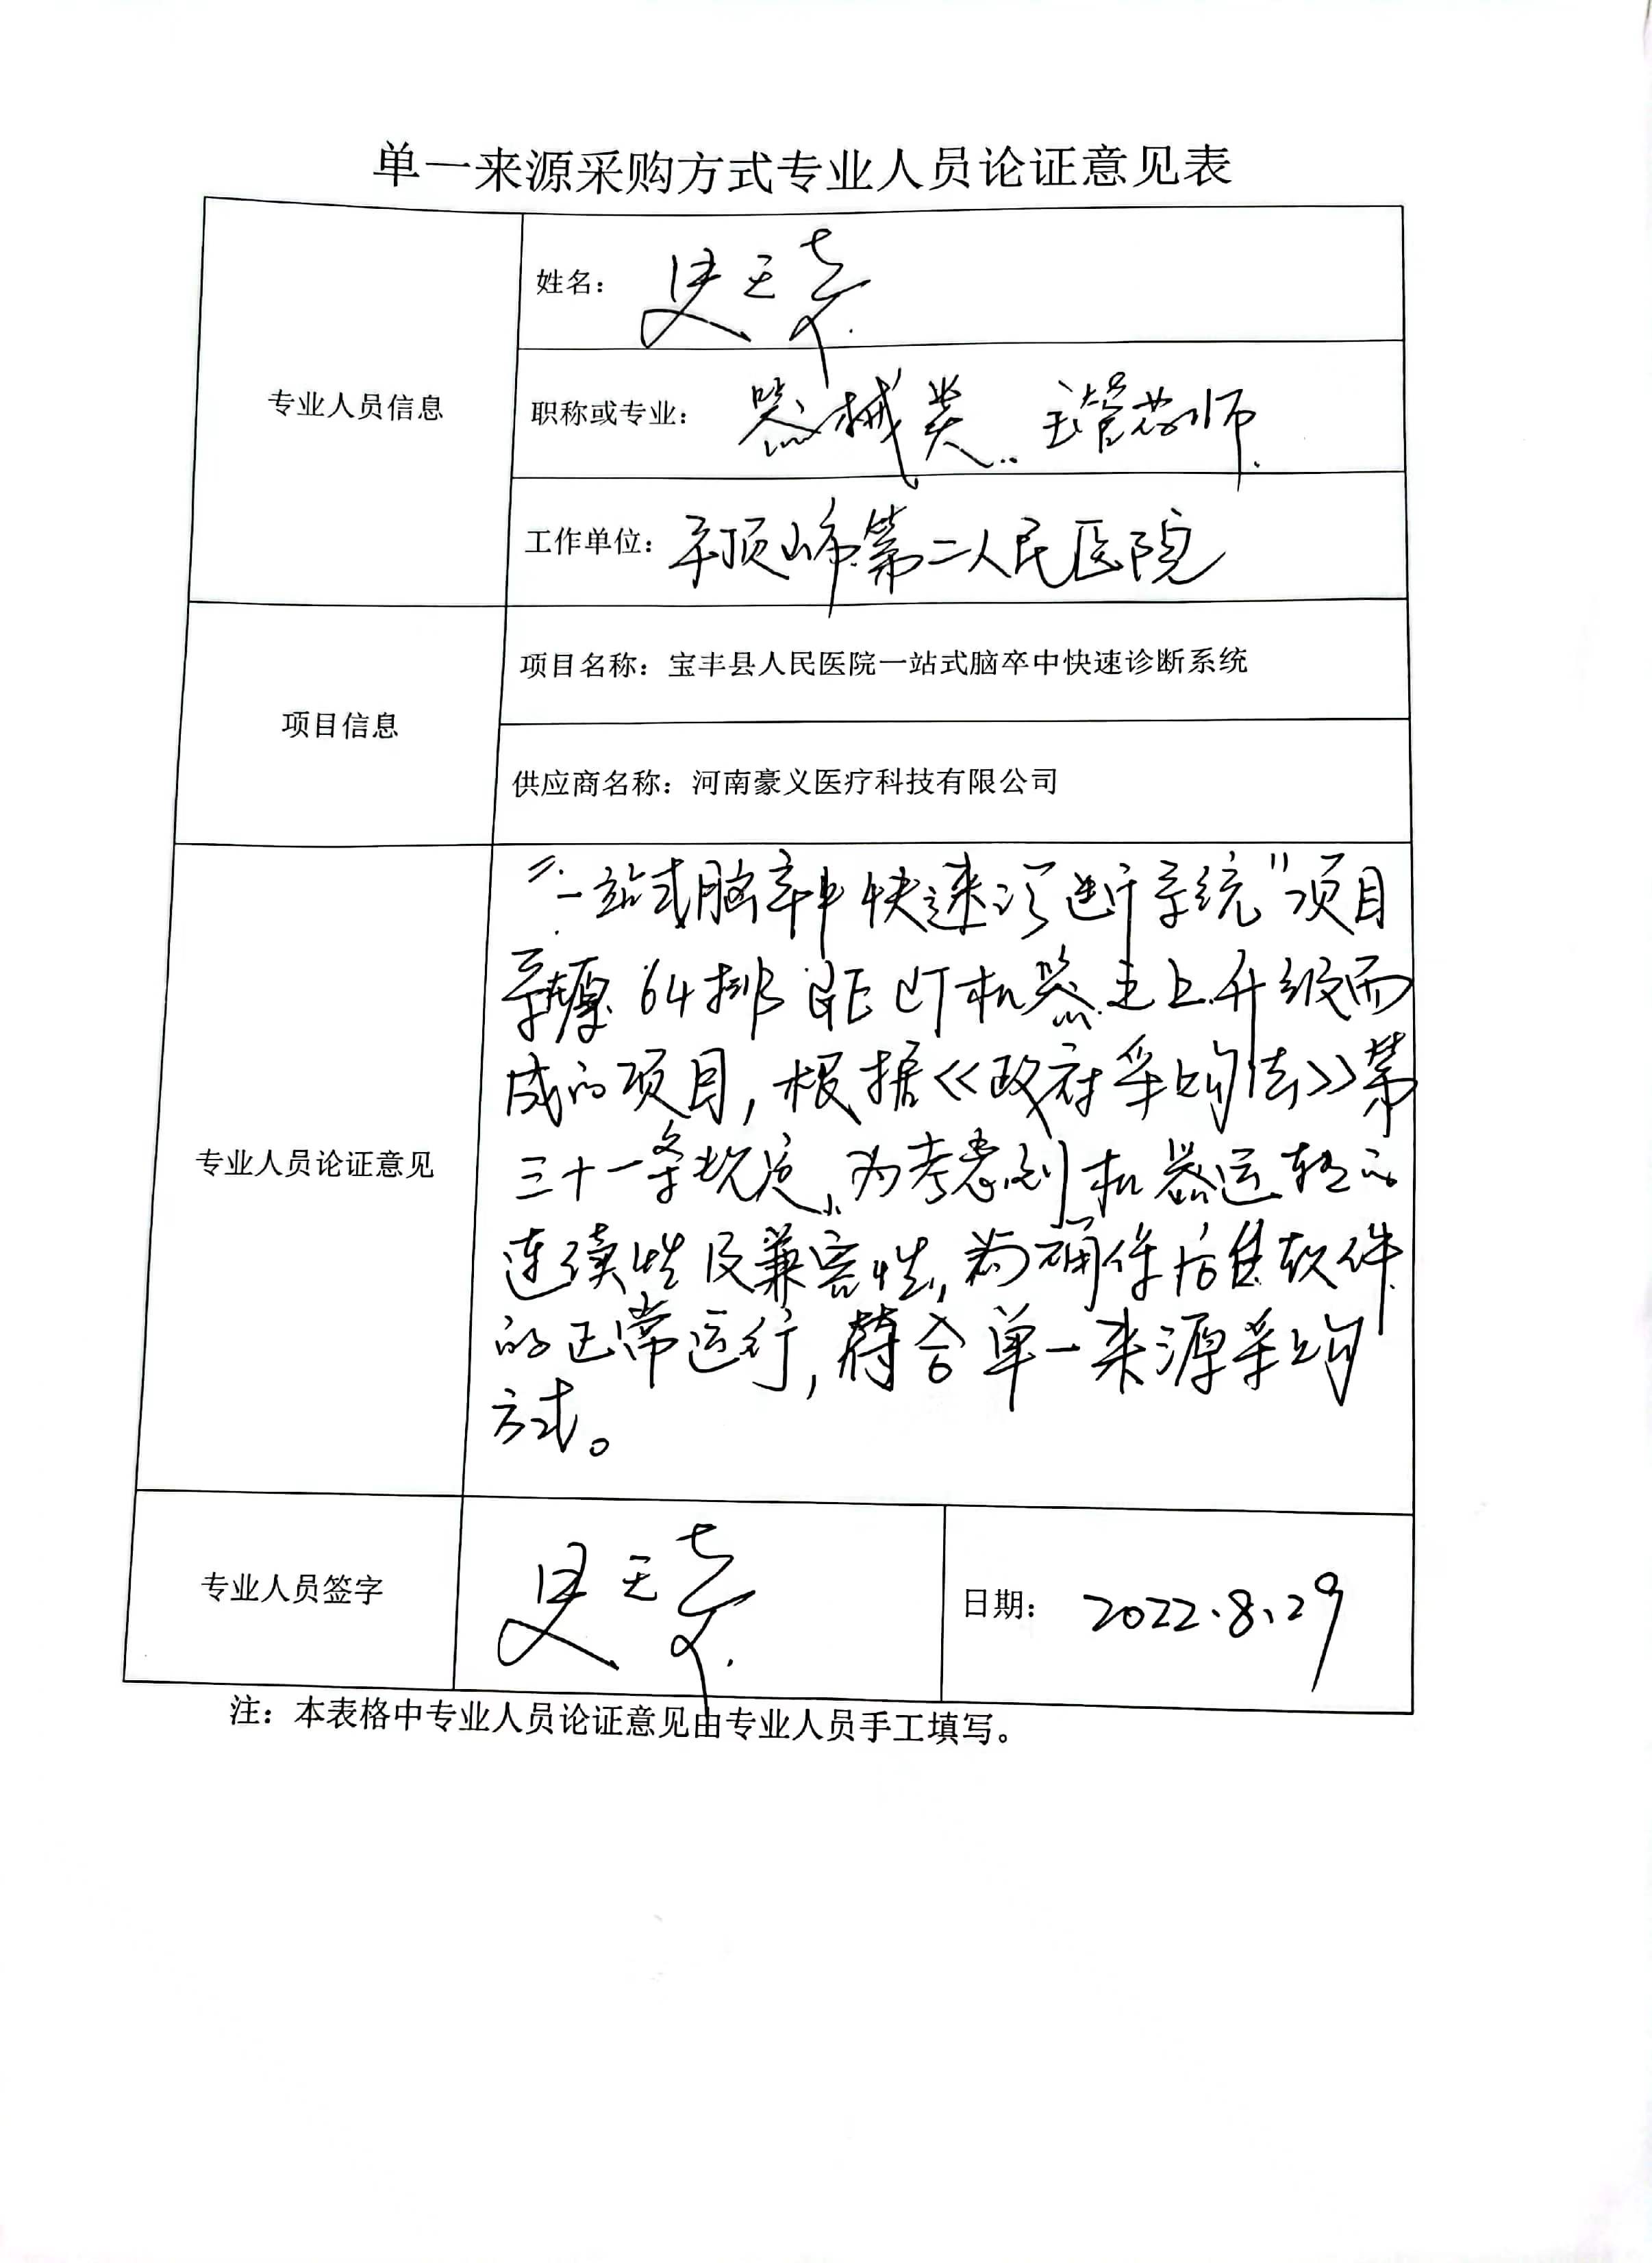 单一来源采购方式专业人员论证意见表
专业人员信息
姓名：史
职称或专业：器械类 主管药师
工作单位：平顶山市第二人民医院
项目信息
项目名称：宝丰县人民医院一站式脑卒中快速诊断系统
供应商名称：河南豪义医疗科技有限公司
专业人员论证意见
“一站式脑卒中快速诊断系统”项目
64排 CT机器之上升级而
成的项目，根据《政府采购法》第
三十一条规定，为考虑到机器运转的
连续性及兼容性，为确保后售软件
的正常运行，符合单一来源采购
方式。
专业人员签字
史
日期：2022.8.29
注：本表格中专业人员论证意见由专业人员手工填写。